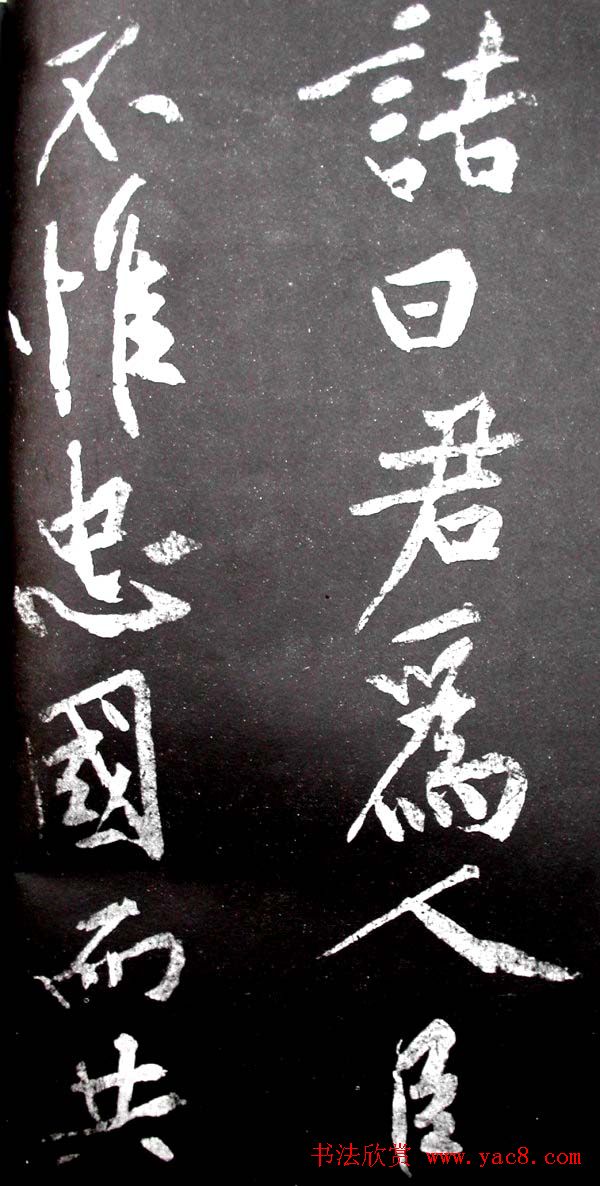 諸曰君爲人臣
不惟忠國而共
书法欣赏 www.yac8.com